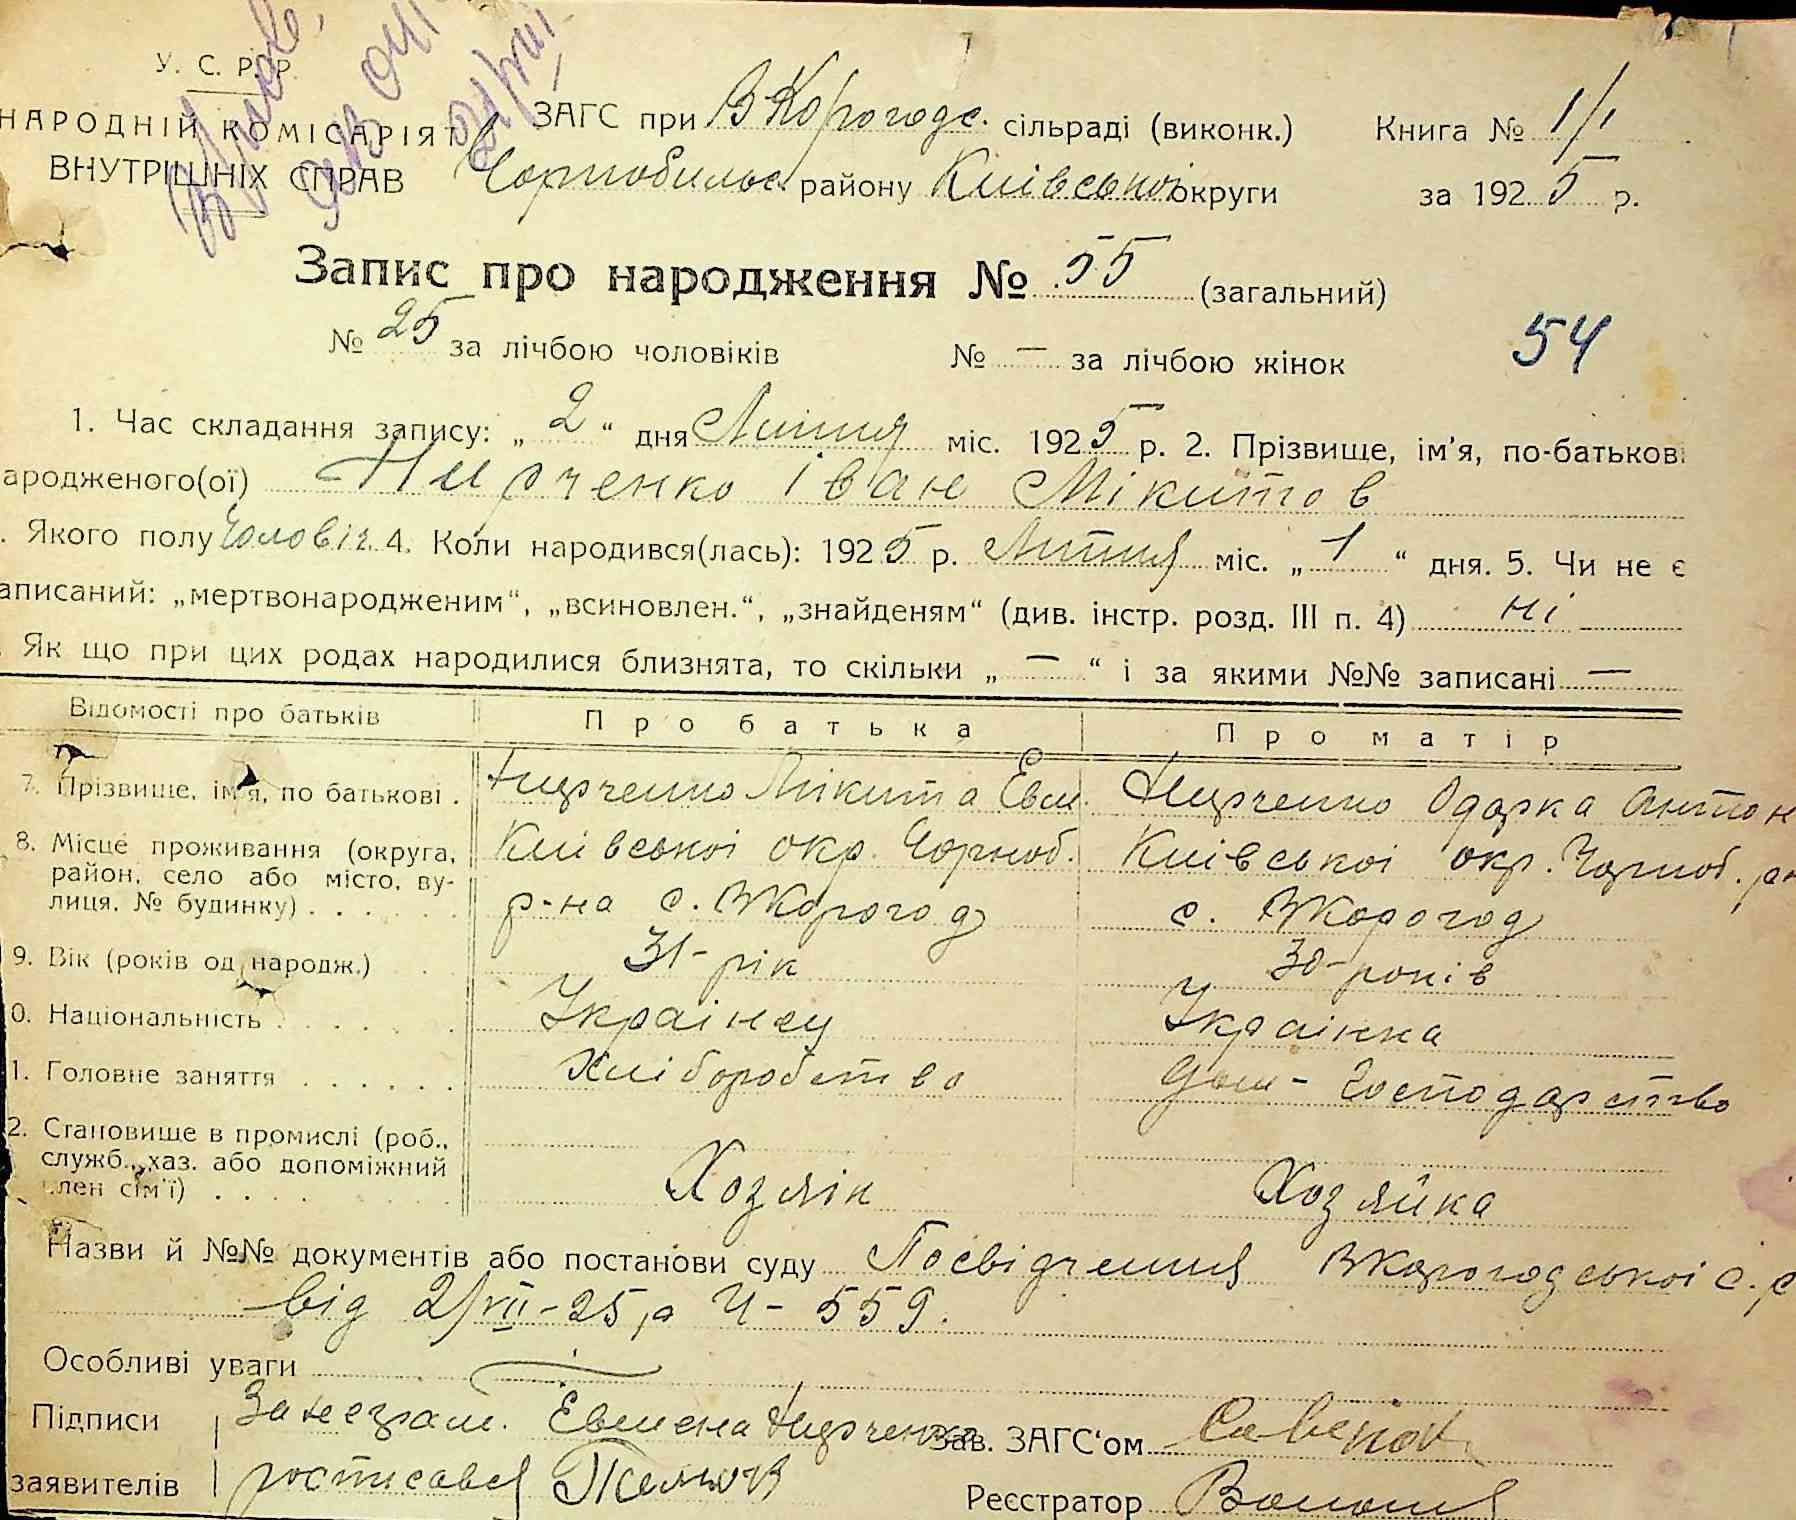 У. С. Р. Р.
НАРОДНІЙ КОМІСАРІЯТ
ВНУТРІШНІХ СПРАВ
ЗАГС при ВКорогодс. сільраді (виконк.) Книга № 1/1
Чорнобильс. району Київської округи за 1925 р.
Запис про народження № 55 (загальний)
№ 25 за лічбою чоловіків № — за лічбою жінок 54
1. Час складання запису: „ 2 “ дня Липня міс. 1925 р. 2. Прізвище, ім'я, по-батькові
ародженого(ої) Нирченко Іван Мікитов
. Якого полу Чоловіч. 4. Коли народився(лась): 1925 р. Липня міс. „ 1 “ дня. 5. Чи не є
аписаний: „мертвонародженим“, „всиновлен.“, „знайденям“ (див. інстр. розд. III п. 4) ні
. Як що при цих родах народилися близнята, то скільки „ — “ і за якими №№ записані —
Відомості про батьків Про батька Про матір
7. Прізвище, ім'я, по батькові . Нирченко Мікита Евм. Нирченко Одарка Антон
8. Місце проживання (округа, Київської окр. Чорноб. Київської окр. Чорноб. рн
район, село або місто, ву-
лиця, № будинку) . . . . . р-на с. ВКорогод с. ВКорогод
9. Вік (років од народж.) 31-рік 30-років
0. Національність . . . . . . Українец Украінка
1. Головне заняття . . . . . . Хліборобство Дом-Господарство
2. Становище в промислі (роб.,
служб., хаз. або допоміжний
член сім'ї) . . . . . . . Хозяін Хозяйка
Назви й №№ документів або постанови суду Посвідчення ВКорогодської с.с
від 2/VII-25 р Ч-559.
Особливі уваги
Підписи За неграм. Евмена Нирченка Зав. ЗАГС'ом
заявителів росписавсЯ Реєстратор